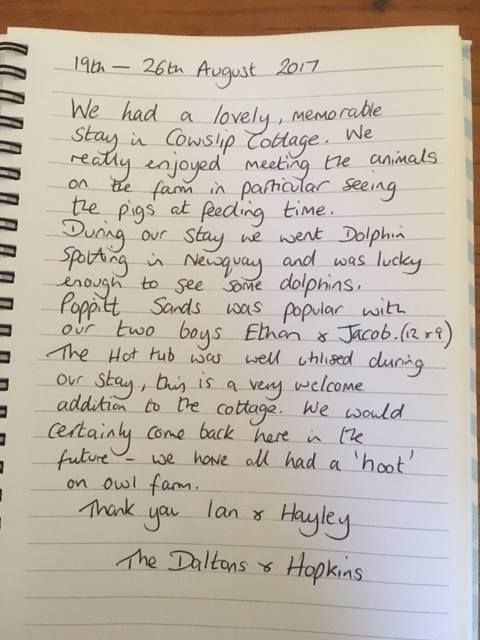 19th - 26th August 2017
We had a lovely, memorable
stay in Cowslip Cottage. We
really enjoyed meeting the animals
on the farm in particular seeing
the pigs at feeding time.
During our stay we went Dolphin
spotting in Newquay and was lucky
enough to see some dolphins.
Poppitt Sands was popular with
our two boys Ethan & Jacob. (12 & 9)
The Hot tub was well utilised during
our stay, this is a very welcome
addition to the cottage. We would
certainly come back here in the
future - we have all had a 'hoot'
on owl farm.
Thank you Ian & Hayley
The Daltons & Hopkins